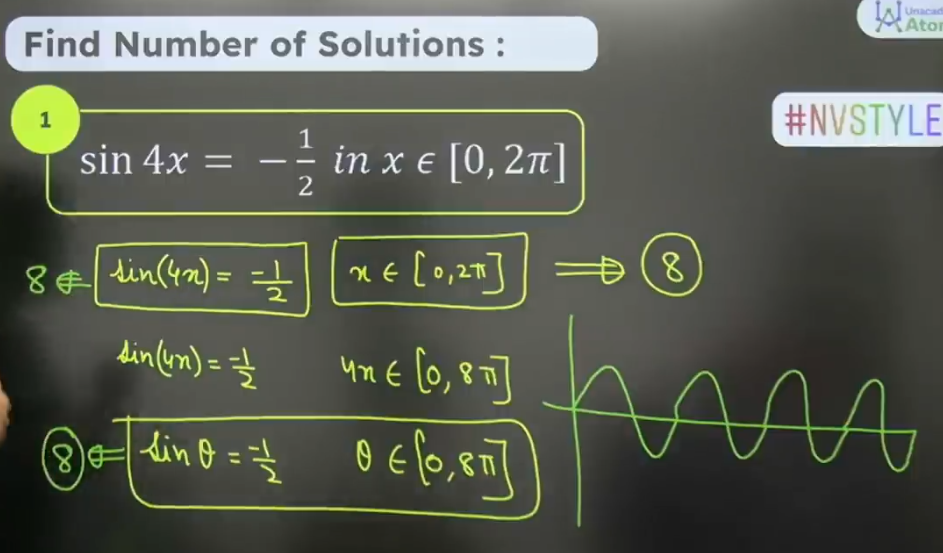 Find Number of Solutions :
Unacad
Ator
#NVSTYLE
1
sin 4x = −1/2 in x ϵ [0, 2π]
8 ⇐ sin(4x) = -1/2 x ∈ [0, 2π] ⟹ 8
sin(4x) = -1/2 4x ∈ [0, 8π]
8 ⇐ sin θ = -1/2 θ ∈ [0, 8π]